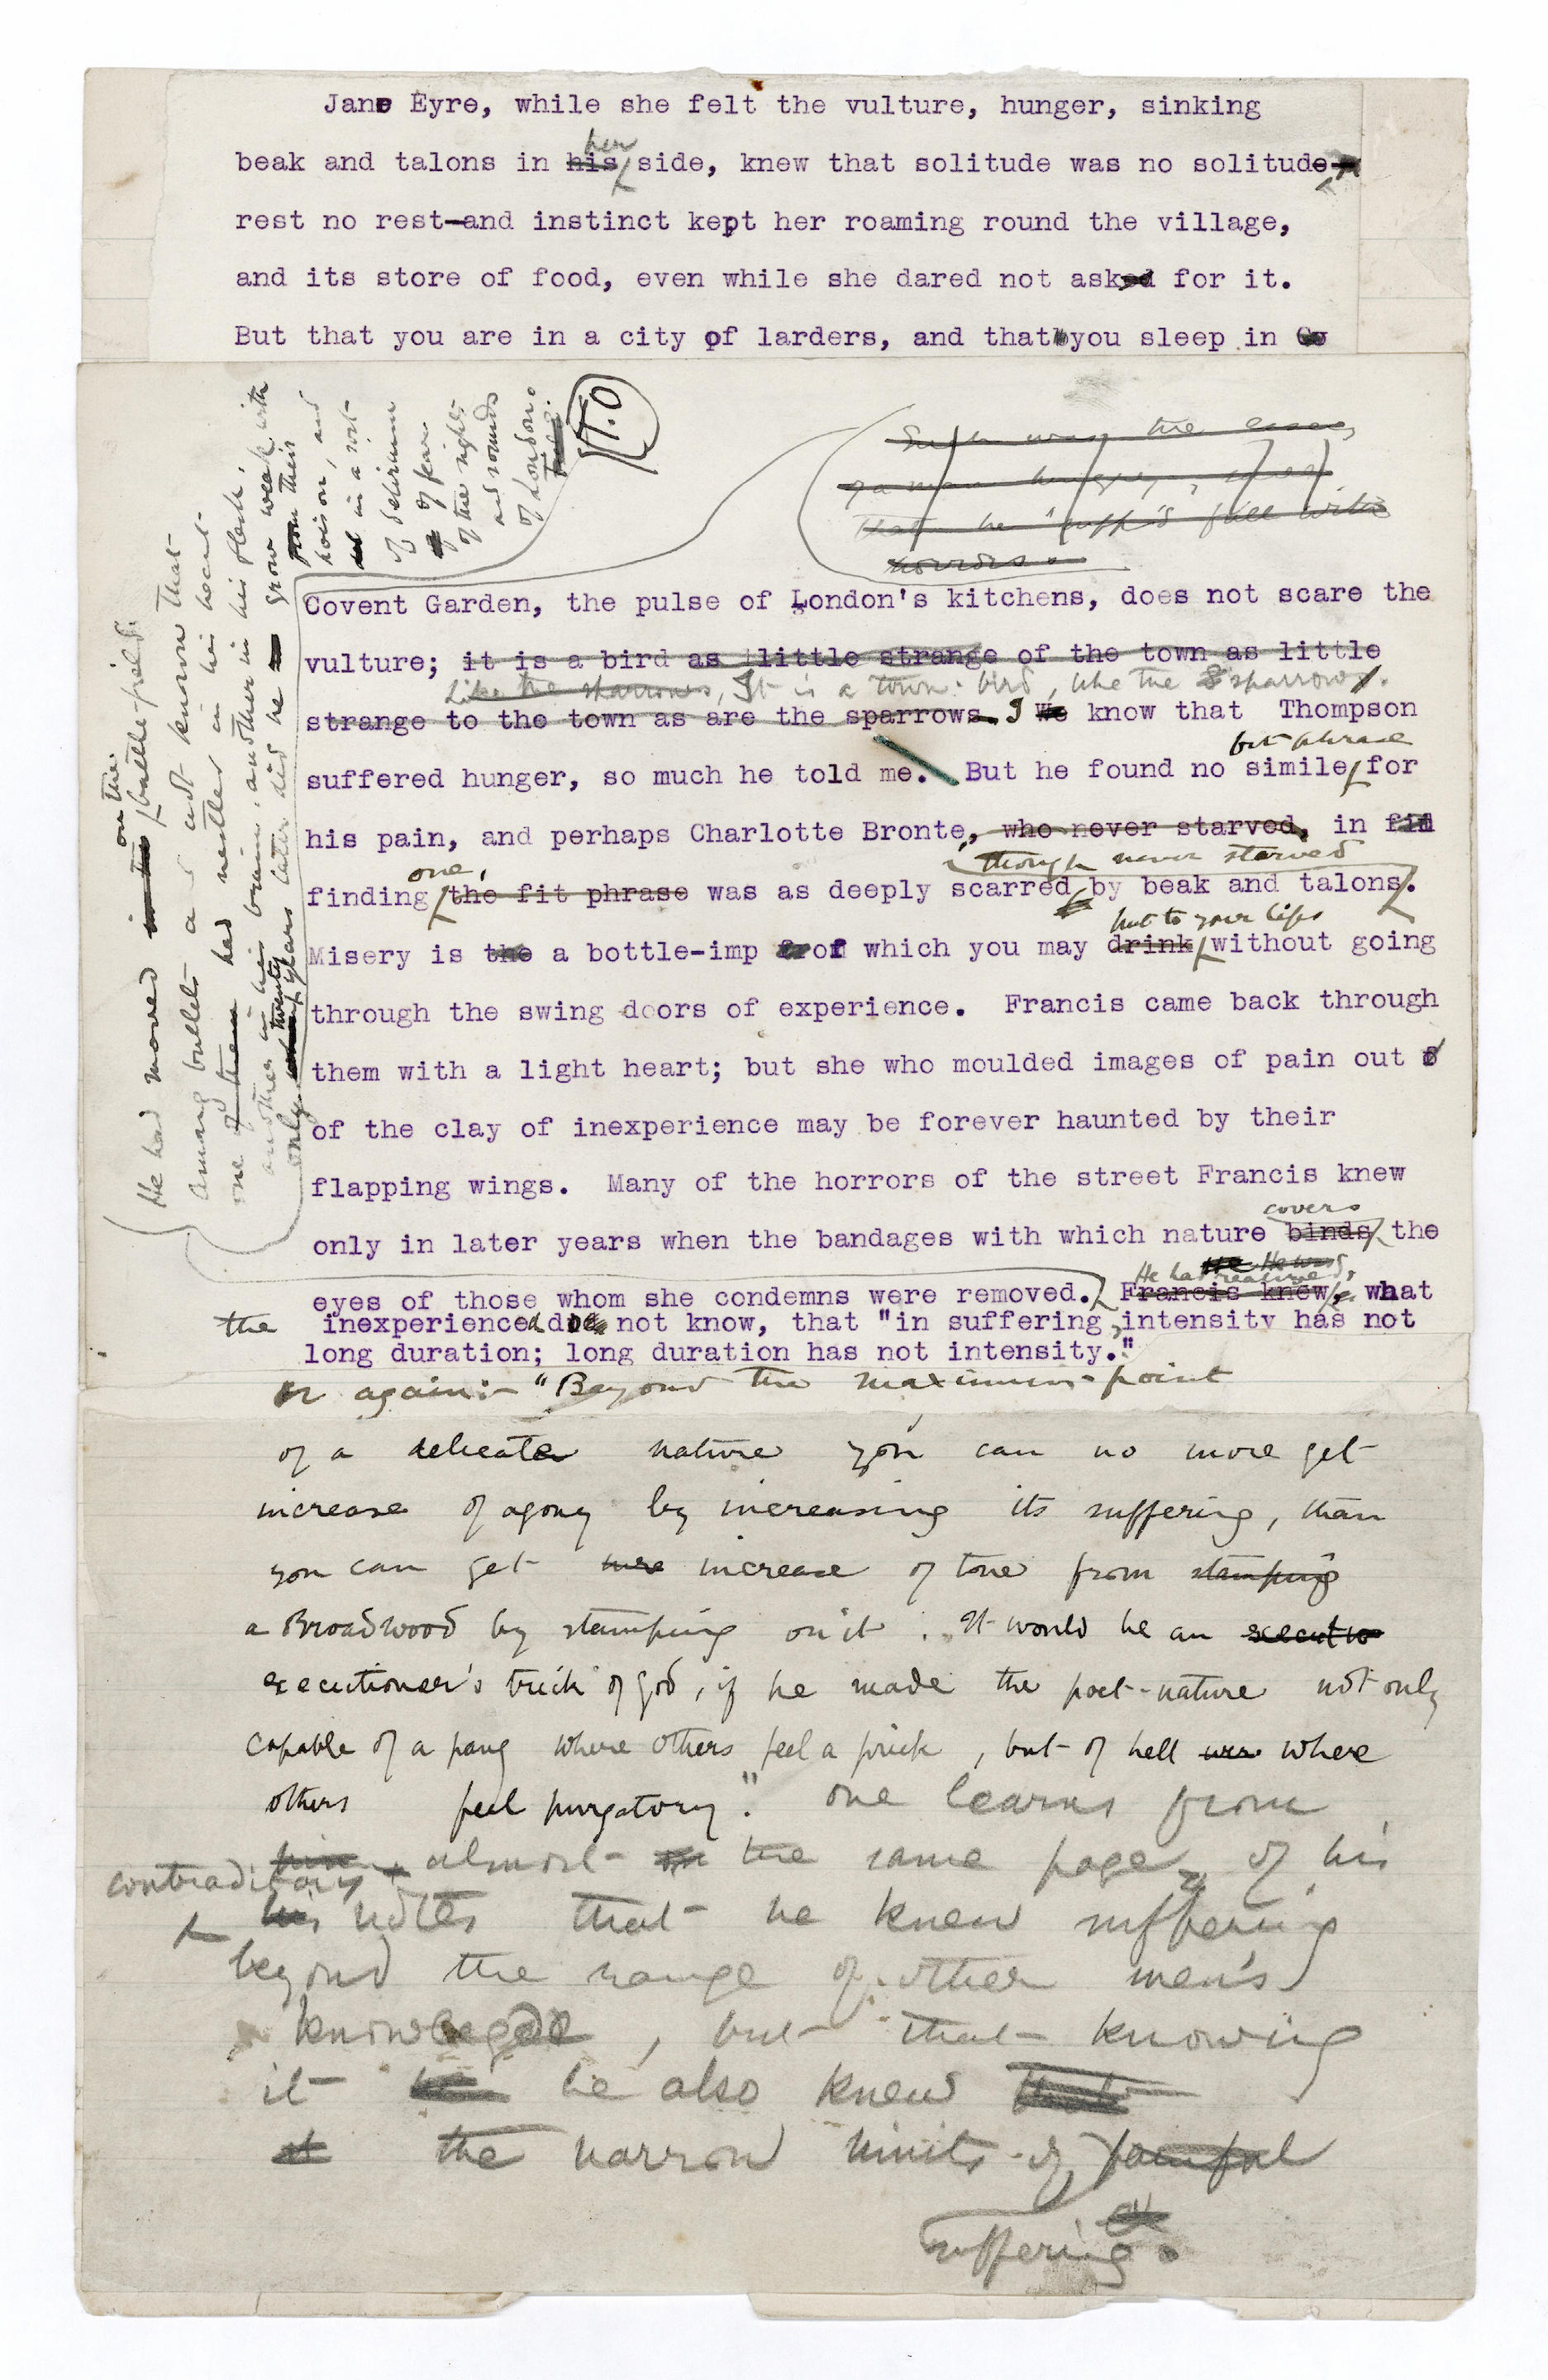 Jane Eyre, while she felt the vulture, hunger, sinking
her
beak and talons in his side, knew that solitude was no solitude
rest no rest—and instinct kept her roaming round the village,
and its store of food, even while she dared not asked for it.
But that you are in a city of larders, and that you sleep in Co
T.O
Such was the case
of a man hungry,
that he "supp'd full with
horrors.
Covent Garden, the pulse of London's kitchens, does not scare the
vulture; it is a bird as little strange of the town as little
Like the sparrows, It is a town-bird, like the sparrow.
strange to the town as are the sparrows. I We know that Thompson
fit phrase
suffered hunger, so much he told me. But he found no simile for
his pain, and perhaps Charlotte Bronte, who never starved, in fid
though never starved
one,
finding the fit phrase was as deeply scarred by beak and talons.
put to your lips
Misery is the a bottle-imp of which you may drink without going
through the swing doors of experience. Francis came back through
them with a light heart; but she who moulded images of pain out
of the clay of inexperience may be forever haunted by their
flapping wings. Many of the horrors of the street Francis knew
covers
only in later years when the bandages with which nature binds the
He was
He has realised,
eyes of those whom she condemns were removed. Francis knew, what
the inexperienced do not know, that "in suffering, intensity has not
long duration; long duration has not intensity."
or again:- "Beyond the maximum point
of a delicate nature you can no more get
increase of agony by increasing its suffering, than
you can get more increase of tone from stamping
a Broadwood by stamping on it. It would be an executio
executioner's trick of god, if he made the poet-nature not only
capable of a pang where others feel a prick, but of hell where
others feel purgatory." One learns from
almost on the same page of his
contradictory
his notes that he knew suffering
beyond the range of other men's
knowledge, but that knowing
it he he also knew that
the narrow limits of painful
suffering.
He had moved in the on the battle-field
among bullets and not known that
one of them had nestled in his heart
another in his brain, another in his flesh.
only when twenty years later did he grow weak with
from their
poison, and
in a sort
of delirium
of fear
of the sights
and sounds
of London.